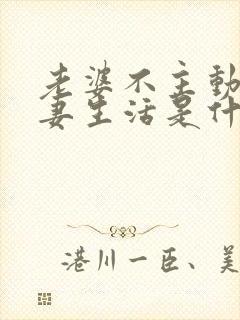 老婆不主动
妻生活是什
港川一臣、美